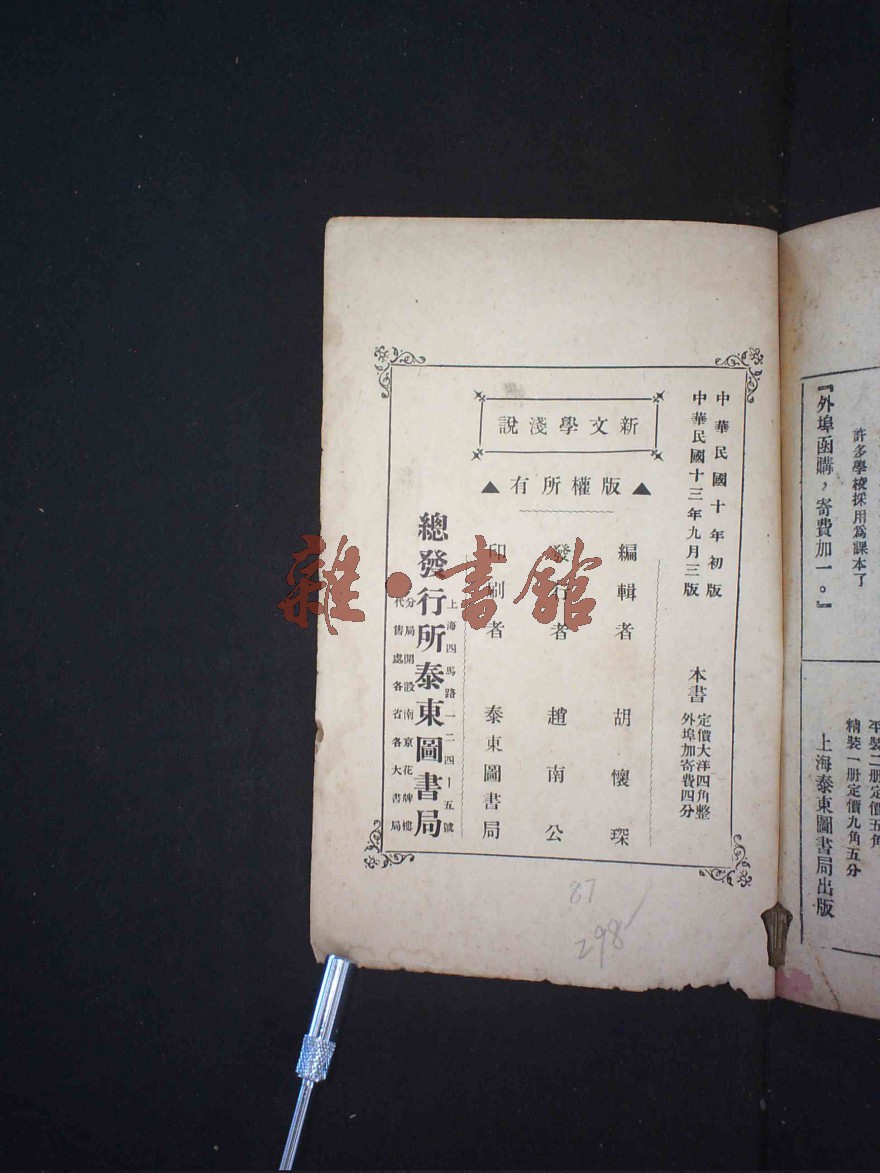 『外埠函購，寄費加一。』
許多學校採用爲課本了
平裝二册定價五角
精裝一册定價九角五分
上海泰東圖書局出版
中華民國十年初版
中華民國十三年九月三版
本書
定價大洋四角整
外埠加寄費四分
新文學淺說
▲版權所有▲
編輯者 胡懷琛
發行者 趙南公
印刷者 泰東圖書局
上海四馬路一二四—五號
總發行所泰東圖書局
分局開設南京花牌樓
代售處各省各大書局
雜·書館
87
298